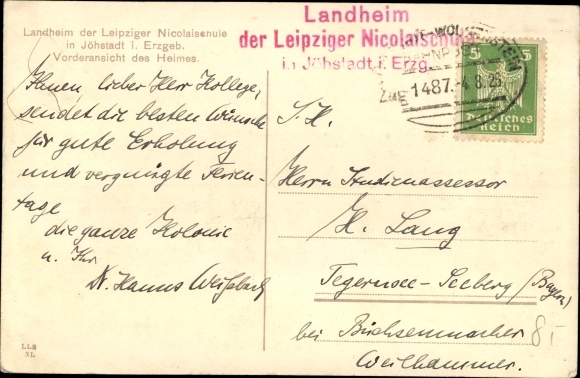 Landheim der Leipziger Nicolaischule
in Jöhstadt i. Erzgeb.
Vorderansicht des Heimes.
Landheim
der Leipziger Nicolaischule
in Jöhstadt i. Erzg.
WOLKENSTEIN
BAHNPOST
Zug 1487.-4.8.26
5 5
Deutsches
Reich
Ihnen lieber Herr Kollege,
sendet die besten Wünsche
für gute Erholung
und vergnügte Ferien-
tage
die ganze Kolonie
u. Ihr
Dr. Hanns Weißbach
S. H.
Herrn Studienassessor
H. Lang
Tegernsee-Seeberg (Bayern)
bei Büchsenmacher
Weilhammer.
8.-
LLS
NL